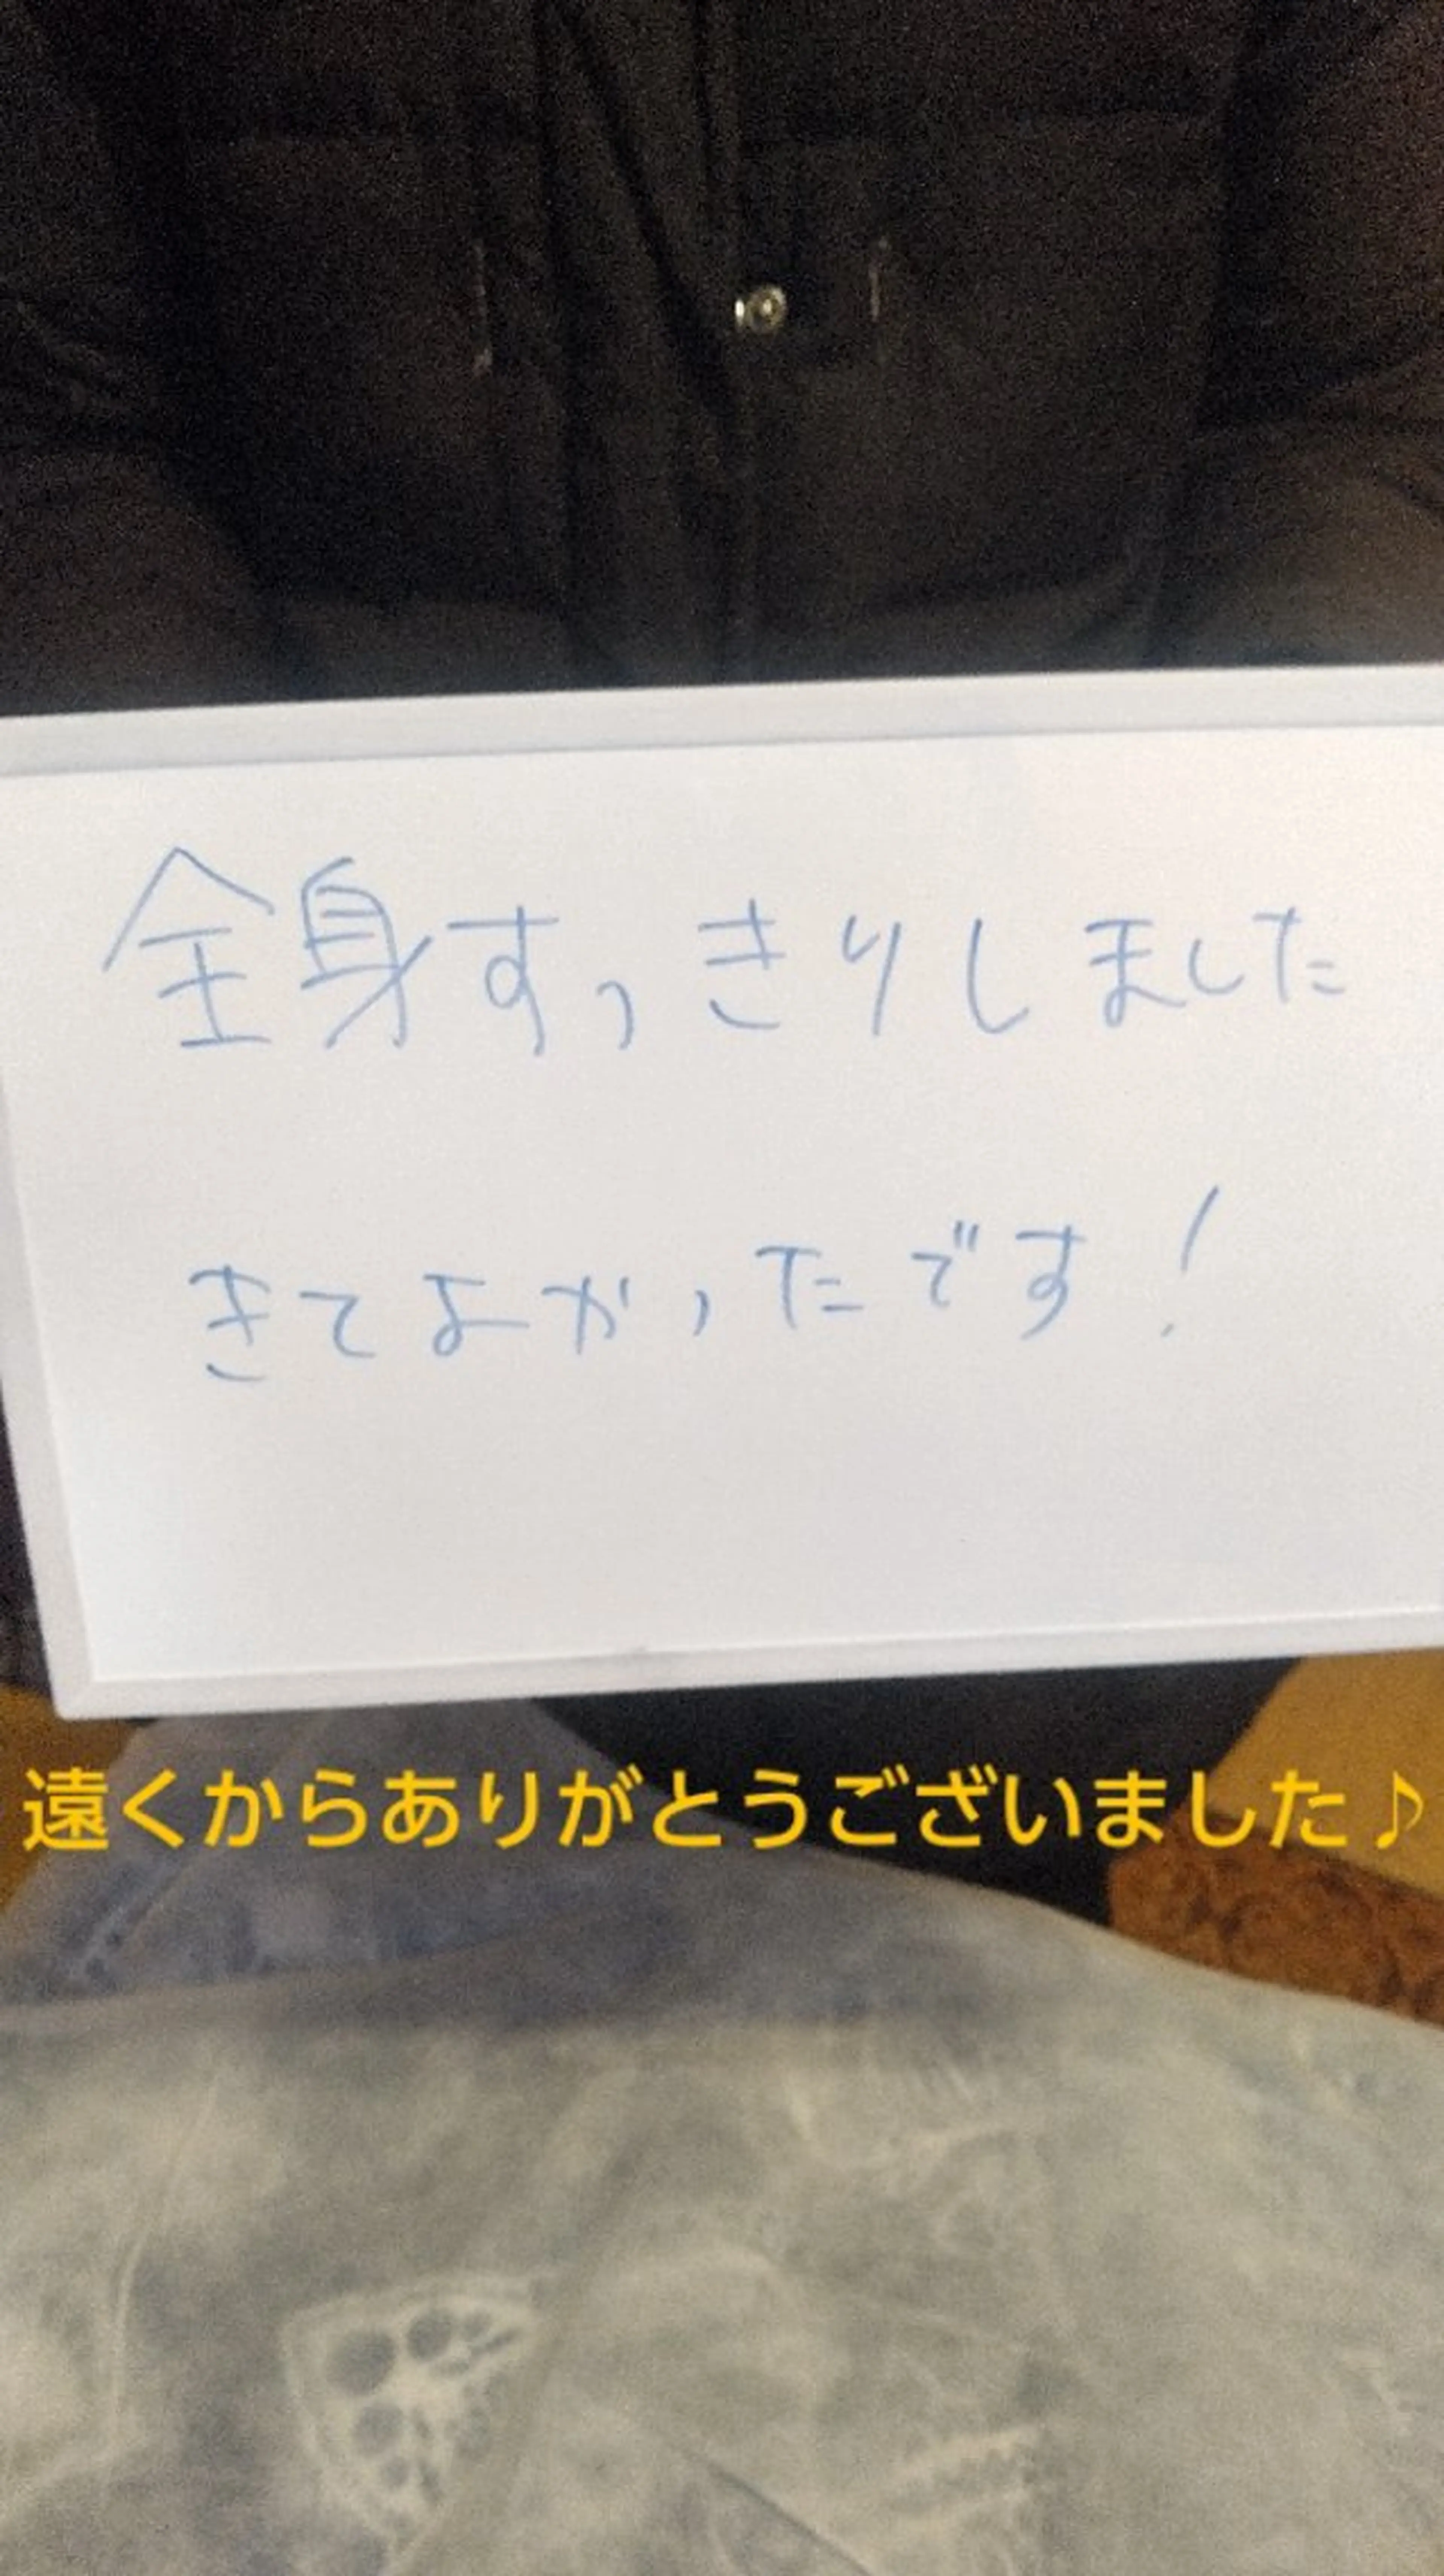 全身すっきりしました
きてよかったです!
遠くからありがとうございました♪